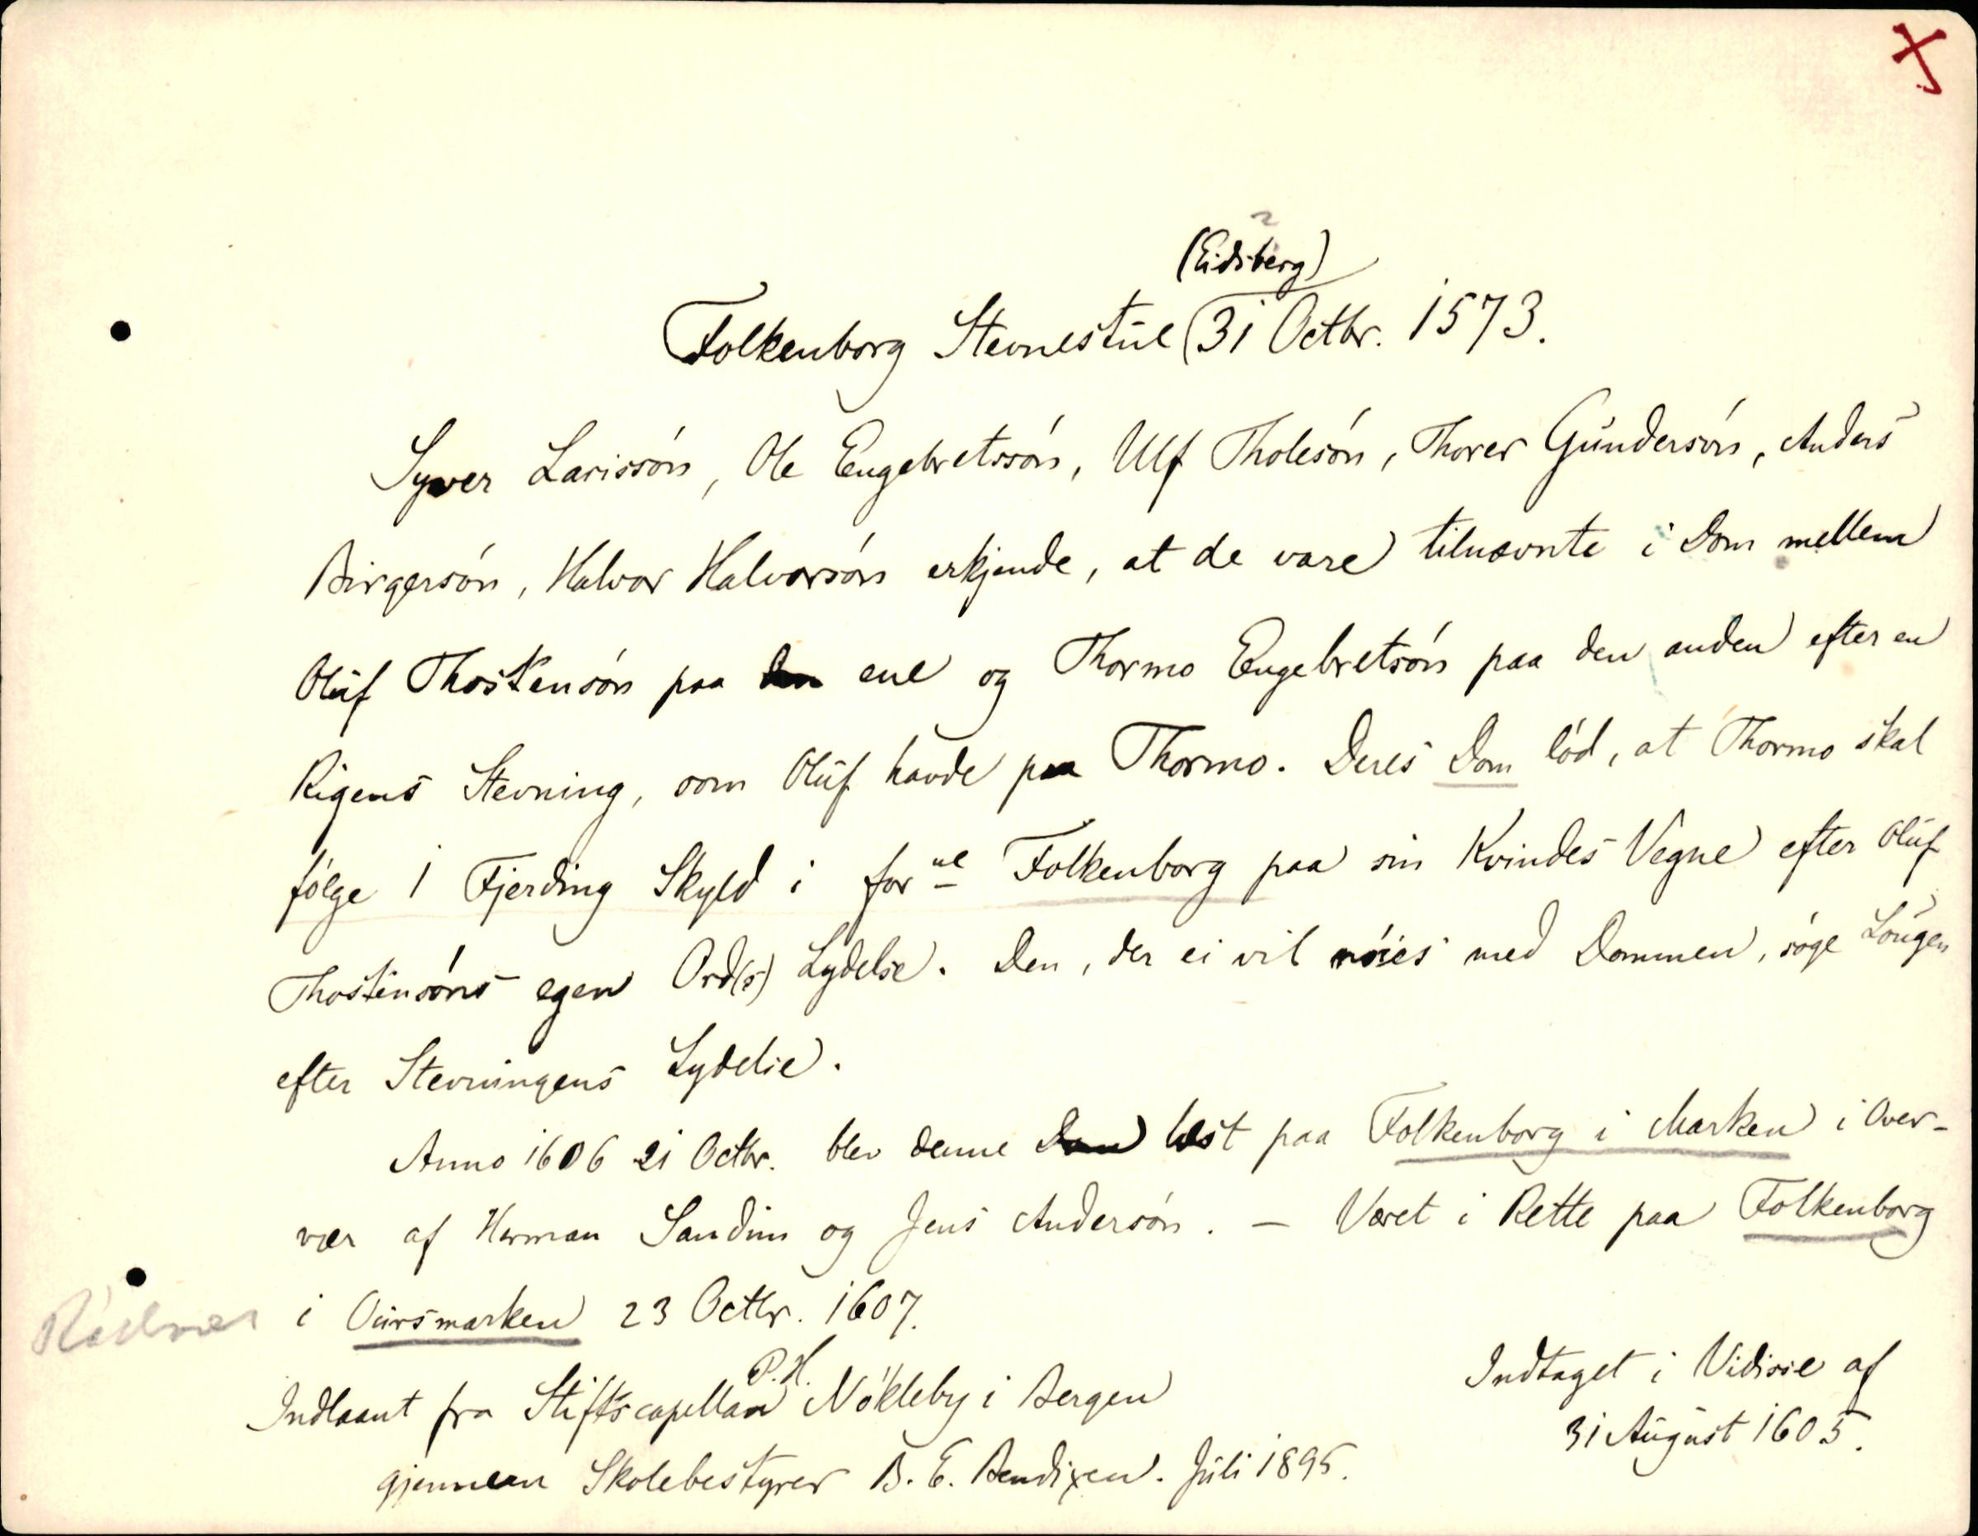 (Eidsberg)
Folkenborg Stevnestue 31 Octbr. 1573.
Syver Larissön, Ole Engebretssön, Ulf Tholesön, Thorer Gundersön, Anders
Birgersön, Halvor Halvorsön erkjende, at de vare tilnævnte i Dom mellem
Oluf Thostensön paa den ene og Thormo Engebretsön paa den anden efter en
Rigens Stevning, som Oluf havde paa Thormo. Deres Dom löd, at Thormo skal
fölge 1 Fjerding Skyld i forne Folkenborg paa sin Kvindes Vegne efter Oluf
Thostensöns egen Ord(s) Lydelse. Den, der ei vil nöies med Dommen, söge Lougen
efter Stevningens Lydelse.
Anno 1606 21 Octbr. blev denne Dom læst paa Folkenborg i Marken i Over-
vær af Herman Sandim og Jens Andersön. — Været i Rette paa Folkenborg
i Oursmarken 23 Octbr. 1607.
Indlaant fra Stiftscapellan P. H. Nökleby i Bergen
gjennem Skolebestyrer B. E. Bendixen. Juli 1895.
Indtaget i Vidisse af
31 August 1605.